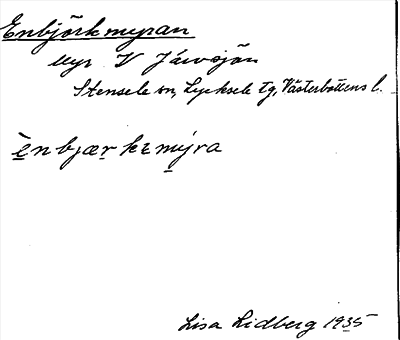 Enbjörkmyran
Myr V Järvsjön
Stensele sn, Lycksele tg, Västerbottens l.
ènbjærkɛmýra
Lisa Lidberg 1935